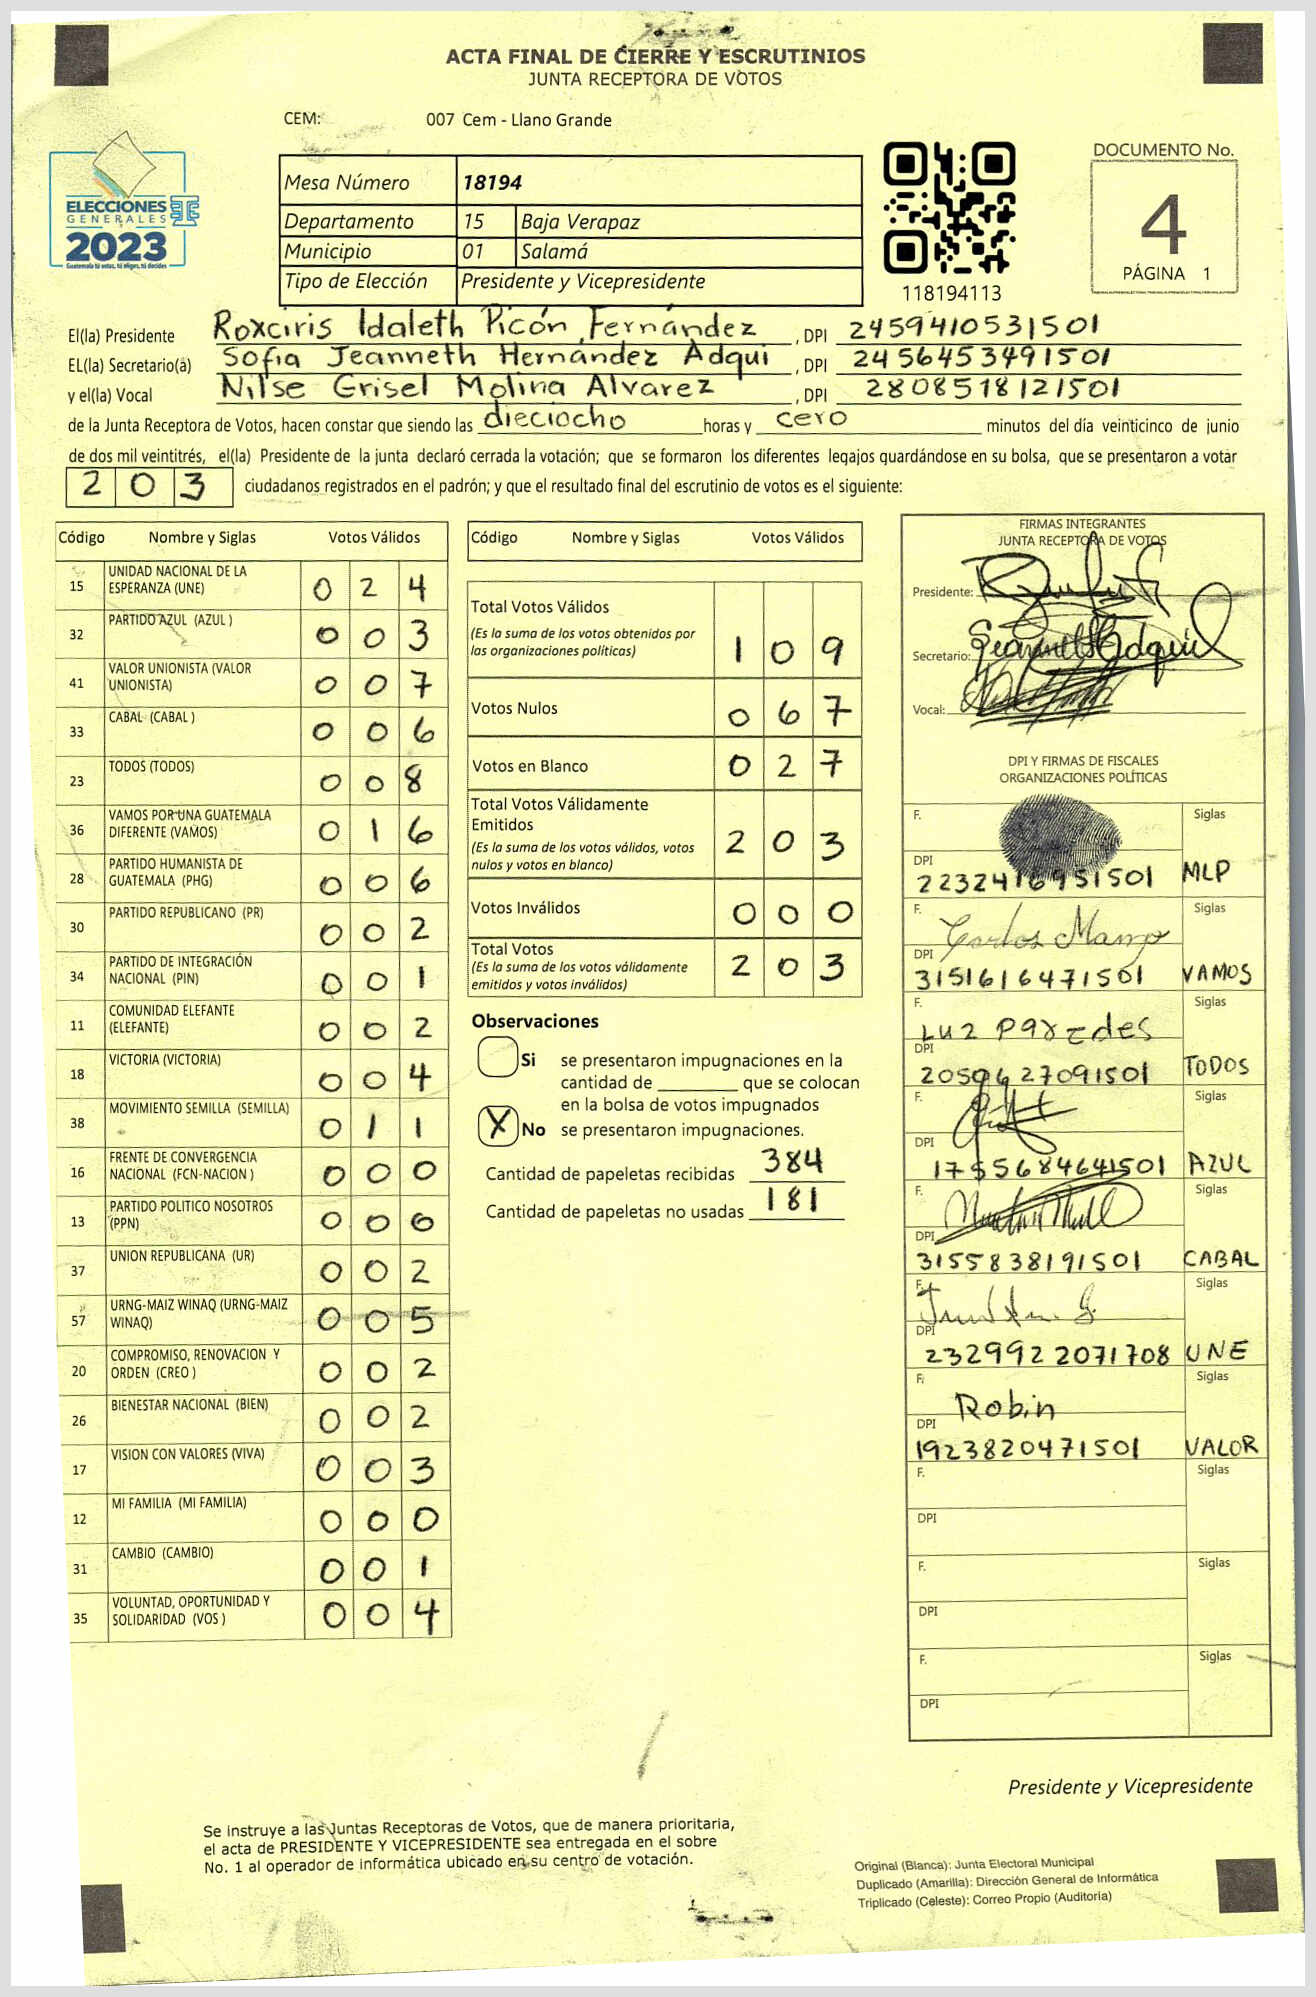 ACTA FINAL DE CIERRE Y ESCRUTINIOS
JUNTA RECEPTORA DE VOTOS
CEM: 007 Cem - Llano Grande
ELECCIONES
GENERALES
2023
Guatemala tú votas, tú eliges, tú decides
Mesa Número 18194
Departamento 15 Baja Verapaz
Municipio 01 Salamá
Tipo de Elección Presidente y Vicepresidente
118194113
DOCUMENTO No.
4
PÁGINA 1
El(la) Presidente Roxciris Idaleth Picón Fernández, DPI 2459410531501
EL(la) Secretario(a) Sofia Jeanneth Hernández Adqui, DPI 2456453491501
y el(la) Vocal Nilse Grisel Molina Alvarez, DPI 2808518121501
de la Junta Receptora de Votos, hacen constar que siendo las dieciocho horas y cero minutos del día veinticinco de junio
de dos mil veintitrés, el(la) Presidente de la junta declaró cerrada la votación; que se formaron los diferentes legajos guardándose en su bolsa, que se presentaron a votar
203 ciudadanos registrados en el padrón; y que el resultado final del escrutinio de votos es el siguiente:
Código Nombre y Siglas Votos Válidos
15 UNIDAD NACIONAL DE LA ESPERANZA (UNE) 0 2 4
32 PARTIDO AZUL (AZUL ) 0 0 3
41 VALOR UNIONISTA (VALOR UNIONISTA) 0 0 7
33 CABAL (CABAL ) 0 0 6
23 TODOS (TODOS) 0 0 8
36 VAMOS POR UNA GUATEMALA DIFERENTE (VAMOS) 0 1 6
28 PARTIDO HUMANISTA DE GUATEMALA (PHG) 0 0 6
30 PARTIDO REPUBLICANO (PR) 0 0 2
34 PARTIDO DE INTEGRACIÓN NACIONAL (PIN) 0 0 1
11 COMUNIDAD ELEFANTE (ELEFANTE) 0 0 2
18 VICTORIA (VICTORIA) 0 0 4
38 MOVIMIENTO SEMILLA (SEMILLA) 0 1 1
16 FRENTE DE CONVERGENCIA NACIONAL (FCN-NACION ) 0 0 0
13 PARTIDO POLITICO NOSOTROS (PPN) 0 0 0
37 UNION REPUBLICANA (UR) 0 0 2
57 URNG-MAIZ WINAQ (URNG-MAIZ WINAQ) 0 0 5
20 COMPROMISO, RENOVACION Y ORDEN (CREO ) 0 0 2
26 BIENESTAR NACIONAL (BIEN) 0 0 2
17 VISION CON VALORES (VIVA) 0 0 3
12 MI FAMILIA (MI FAMILIA) 0 0 0
31 CAMBIO (CAMBIO) 0 0 1
35 VOLUNTAD, OPORTUNIDAD Y SOLIDARIDAD (VOS ) 0 0 4
Código Nombre y Siglas Votos Válidos
Total Votos Válidos
(Es la suma de los votos obtenidos por
las organizaciones políticas) 1 0 9
Votos Nulos 0 6 7
Votos en Blanco 0 2 7
Total Votos Válidamente
Emitidos
(Es la suma de los votos válidos, votos
nulos y votos en blanco) 2 0 3
Votos Inválidos 0 0 0
Total Votos
(Es la suma de los votos válidamente
emitidos y votos inválidos) 2 0 3
Observaciones
Si se presentaron impugnaciones en la
cantidad de ________ que se colocan
en la bolsa de votos impugnados
X No se presentaron impugnaciones.
Cantidad de papeletas recibidas 384
Cantidad de papeletas no usadas 181
FIRMAS INTEGRANTES
JUNTA RECEPTORA DE VOTOS
Presidente:
Secretario:
Vocal:
DPI Y FIRMAS DE FISCALES
ORGANIZACIONES POLÍTICAS
F. Siglas
DPI 2232416951501 MLP
F. Carlos Siglas
DPI 3151616471501 VAMOS
F. Luz Paredes Siglas
DPI 2059627091501 TODOS
F. Siglas
DPI 1755684641501 AZUL
F. Siglas
DPI 3155838191501 CABAL
F. Siglas
DPI 2329922071708 UNE
F. Robin Siglas
DPI 1923820471501 VALOR
F. Siglas
DPI
F. Siglas
DPI
F. Siglas
DPI
Presidente y Vicepresidente
Se instruye a las Juntas Receptoras de Votos, que de manera prioritaria,
el acta de PRESIDENTE Y VICEPRESIDENTE sea entregada en el sobre
No. 1 al operador de informática ubicado en su centro de votación.
Original (Blanca): Junta Electoral Municipal
Duplicado (Amarilla): Dirección General de Informática
Triplicado (Celeste): Correo Propio (Auditoria)